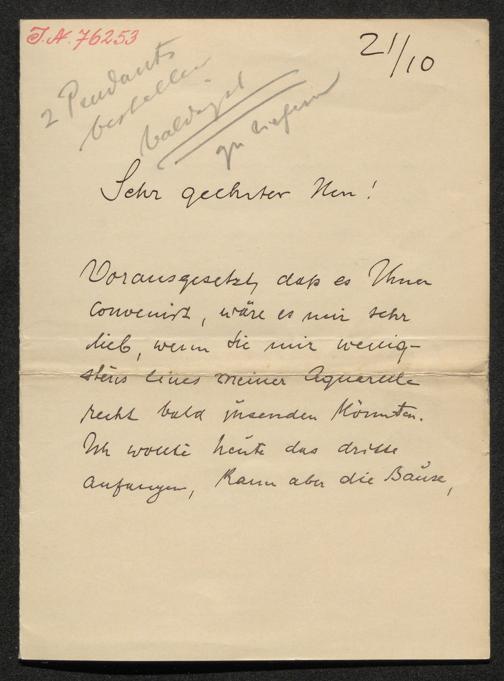 I.N. 76253
21/10
2 Pendants
bestellen
baldigst
zu liefern
Sehr geehrter Herr!
Vorausgesetzt, daß es Ihnen
convenirt, wäre es mir sehr
lieb, wenn Sie mir wenig-
stens eines meiner Aquarelle
recht bald zusenden könnten.
Ich wollte heute das dritte
anfangen, kann aber die Bäume,